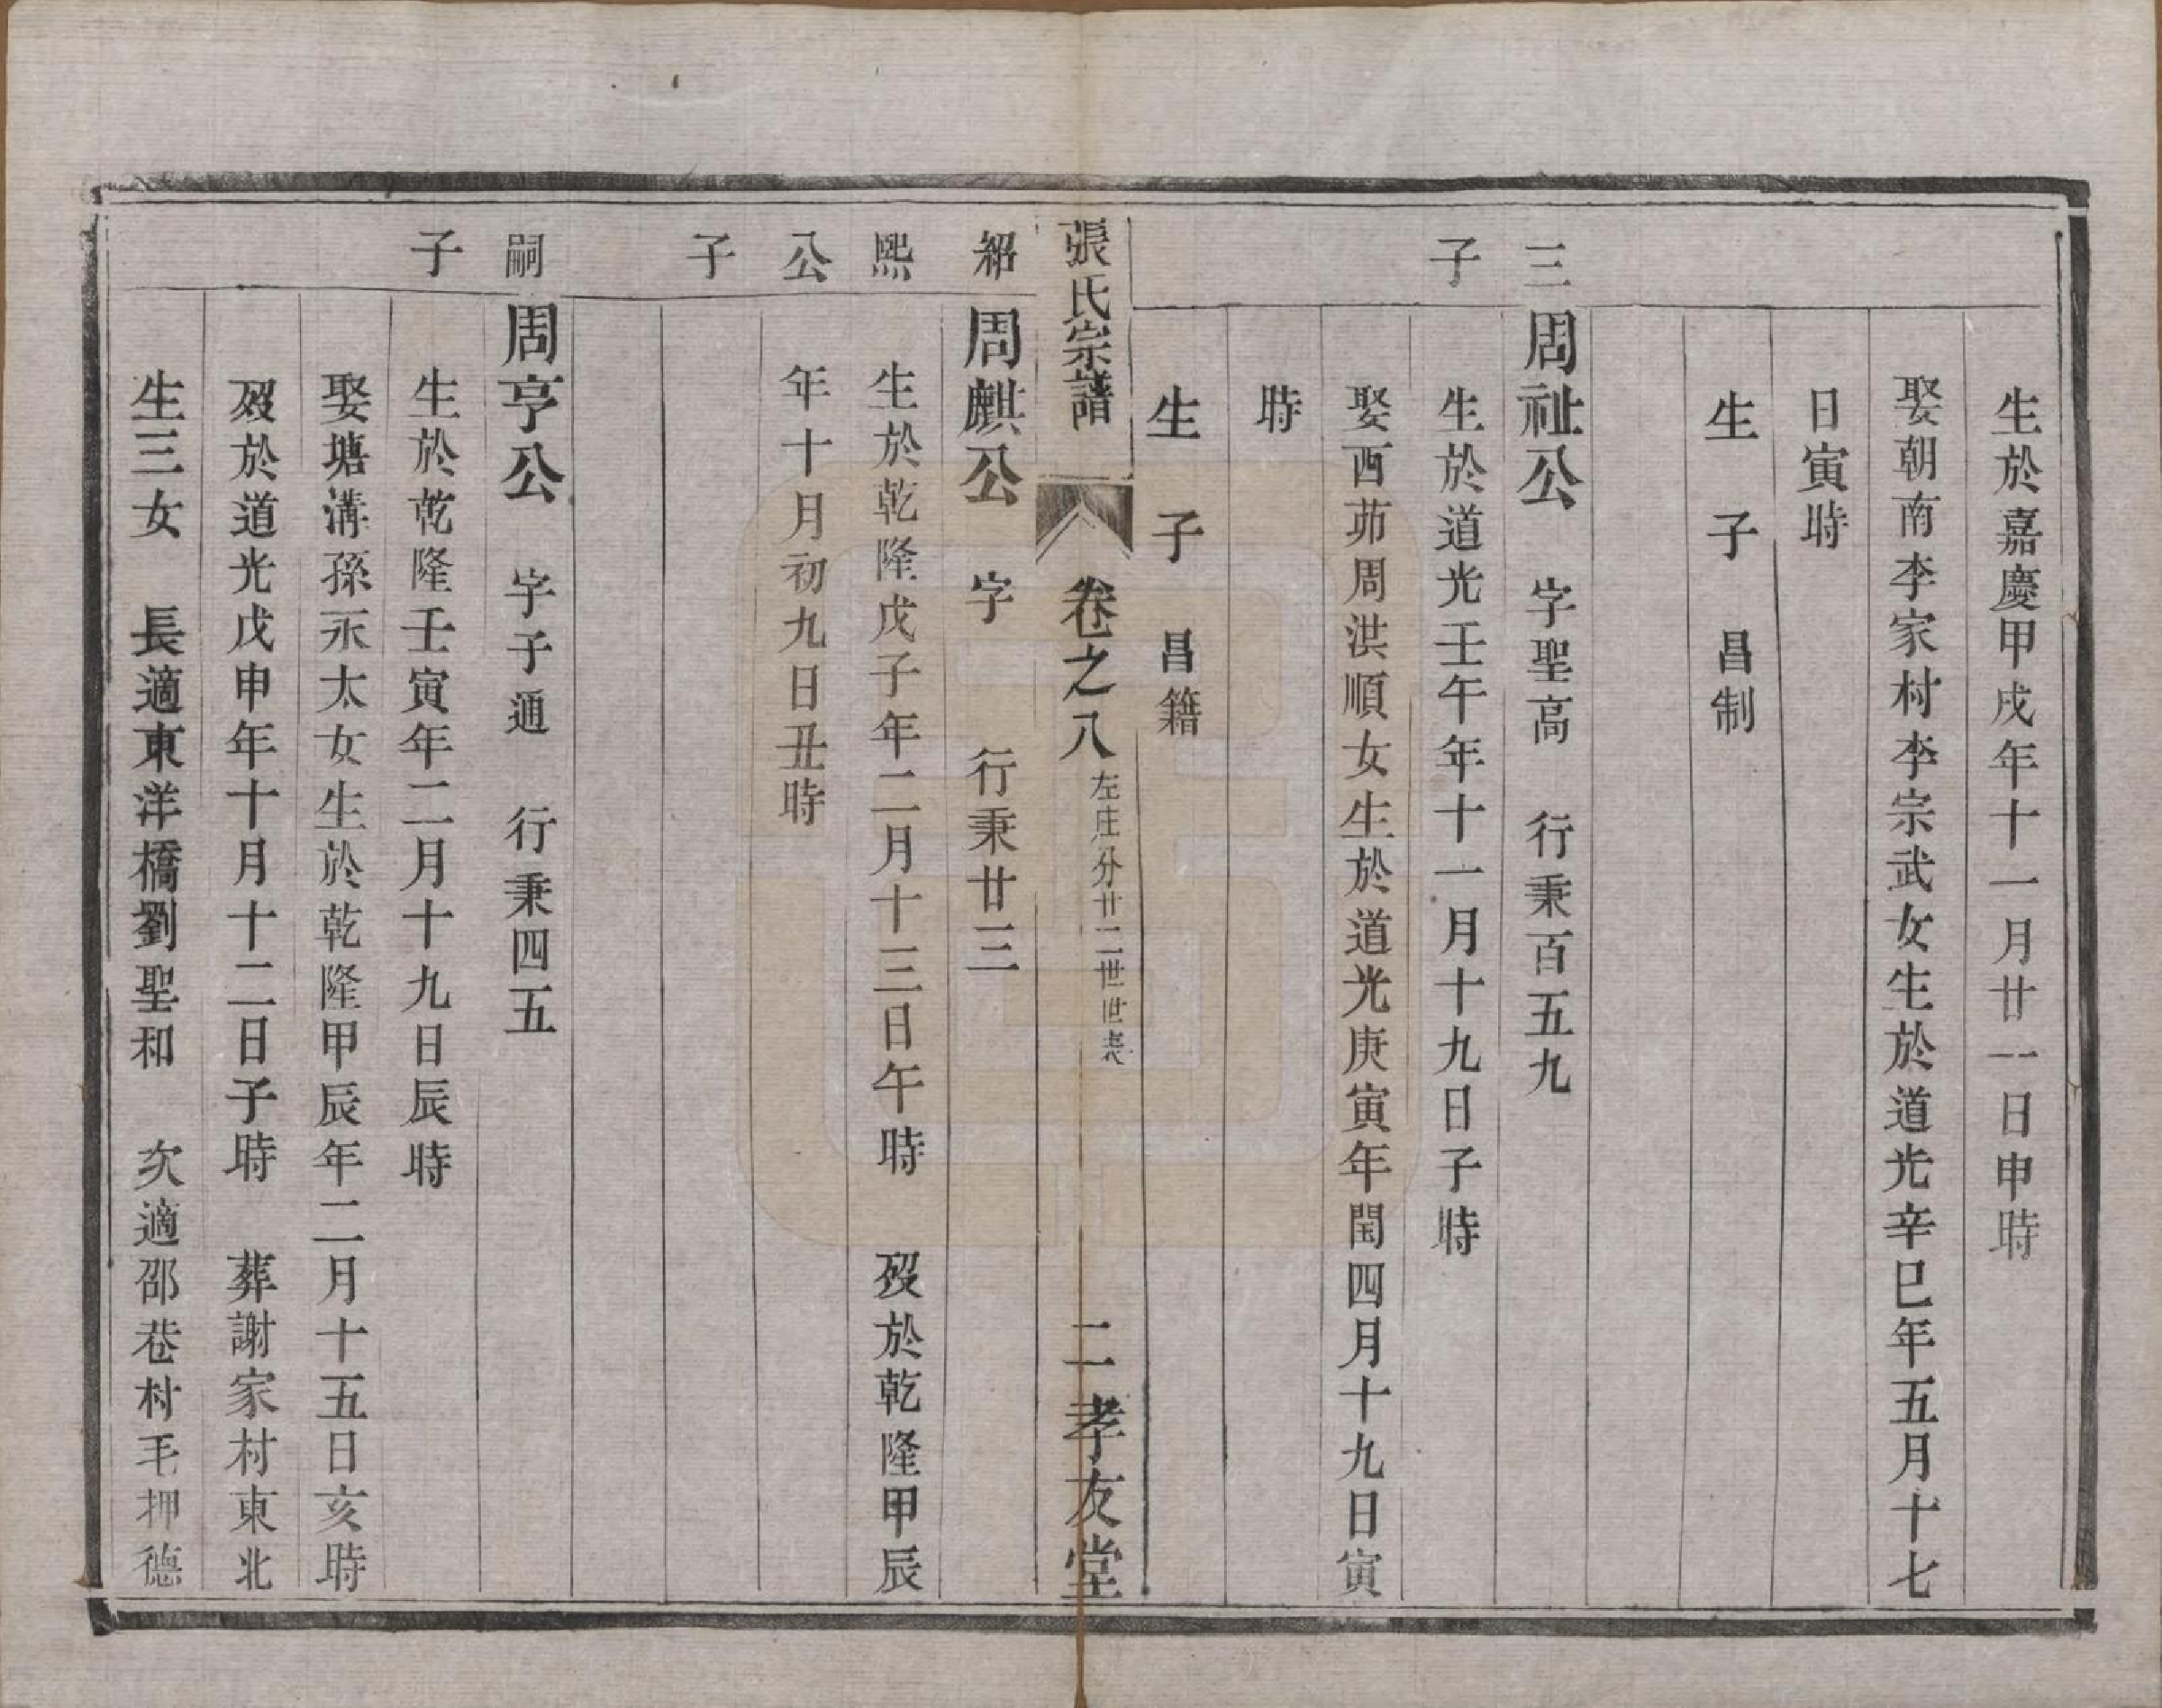 生於嘉慶甲戌年十一月廿一日申時
娶朝南李家村李宗武女生於道光辛巳年五月十七
日寅時
生 子 昌制
三
子
周祉公 字聖高 行秉百五九
生於道光壬午年十一月十九日子時
娶西茆周洪順女生於道光庚寅年閏四月十九日寅
時
生 子 昌籍
張氏宗譜 卷之八 左庄分廿二世世表 二 孝友堂
紹
熙
公
子
周麒公 字 行秉廿三
生於乾隆戊子年二月十三日午時 歿於乾隆甲辰
年十月初九日丑時
嗣
子
周亨公 字子通 行秉四五
生於乾隆壬寅年二月十九日辰時
娶塘溝孫永太女生於乾隆甲辰年二月十五日亥時
歿於道光戊申年十月十二日子時 葬謝家村東北
生三女 長適東洋橋劉聖和 次適邵巷村毛押德